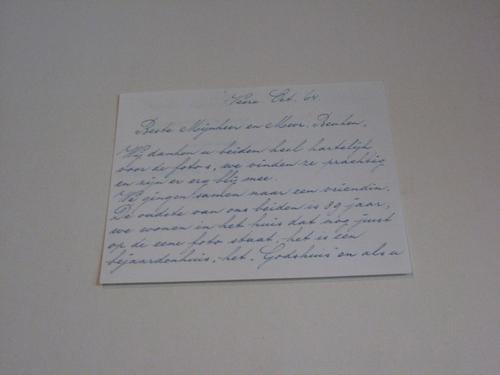 Veere Oct. 64
Beste Mijnheer en Mevr. Beuken,
Wij danken u beiden heel hartelijk
voor de foto's, we vinden ze prachtig
en zijn er erg blij mee.
We gingen samen naar een vriendin.
De oudste van ons beiden is 89 jaar,
we wonen in het huis dat nog juist
op de eene foto staat, het is een
bejaardenhuis, het "Godshuis" en als u